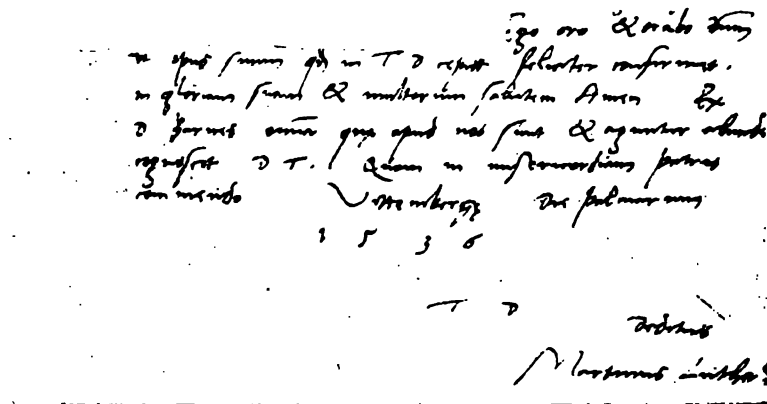 Ego oro & orabo Dnm
ut opus suum qd in T D cepit feliciter confirmet.
in gloriam suam & multorum salutem Amen Ex
D omnia que apud nos sunt & aguntur
cognoscet D T. Quam in misericordiam patris
commendo Vittembergę Die palmarum
1 5 3 6
T D
deditus
Martinus Luther